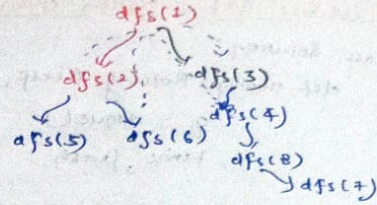 dfs(1)
dfs(2) dfs(3)
dfs(4)
dfs(5) dfs(6)
dfs(8)
dfs(7)